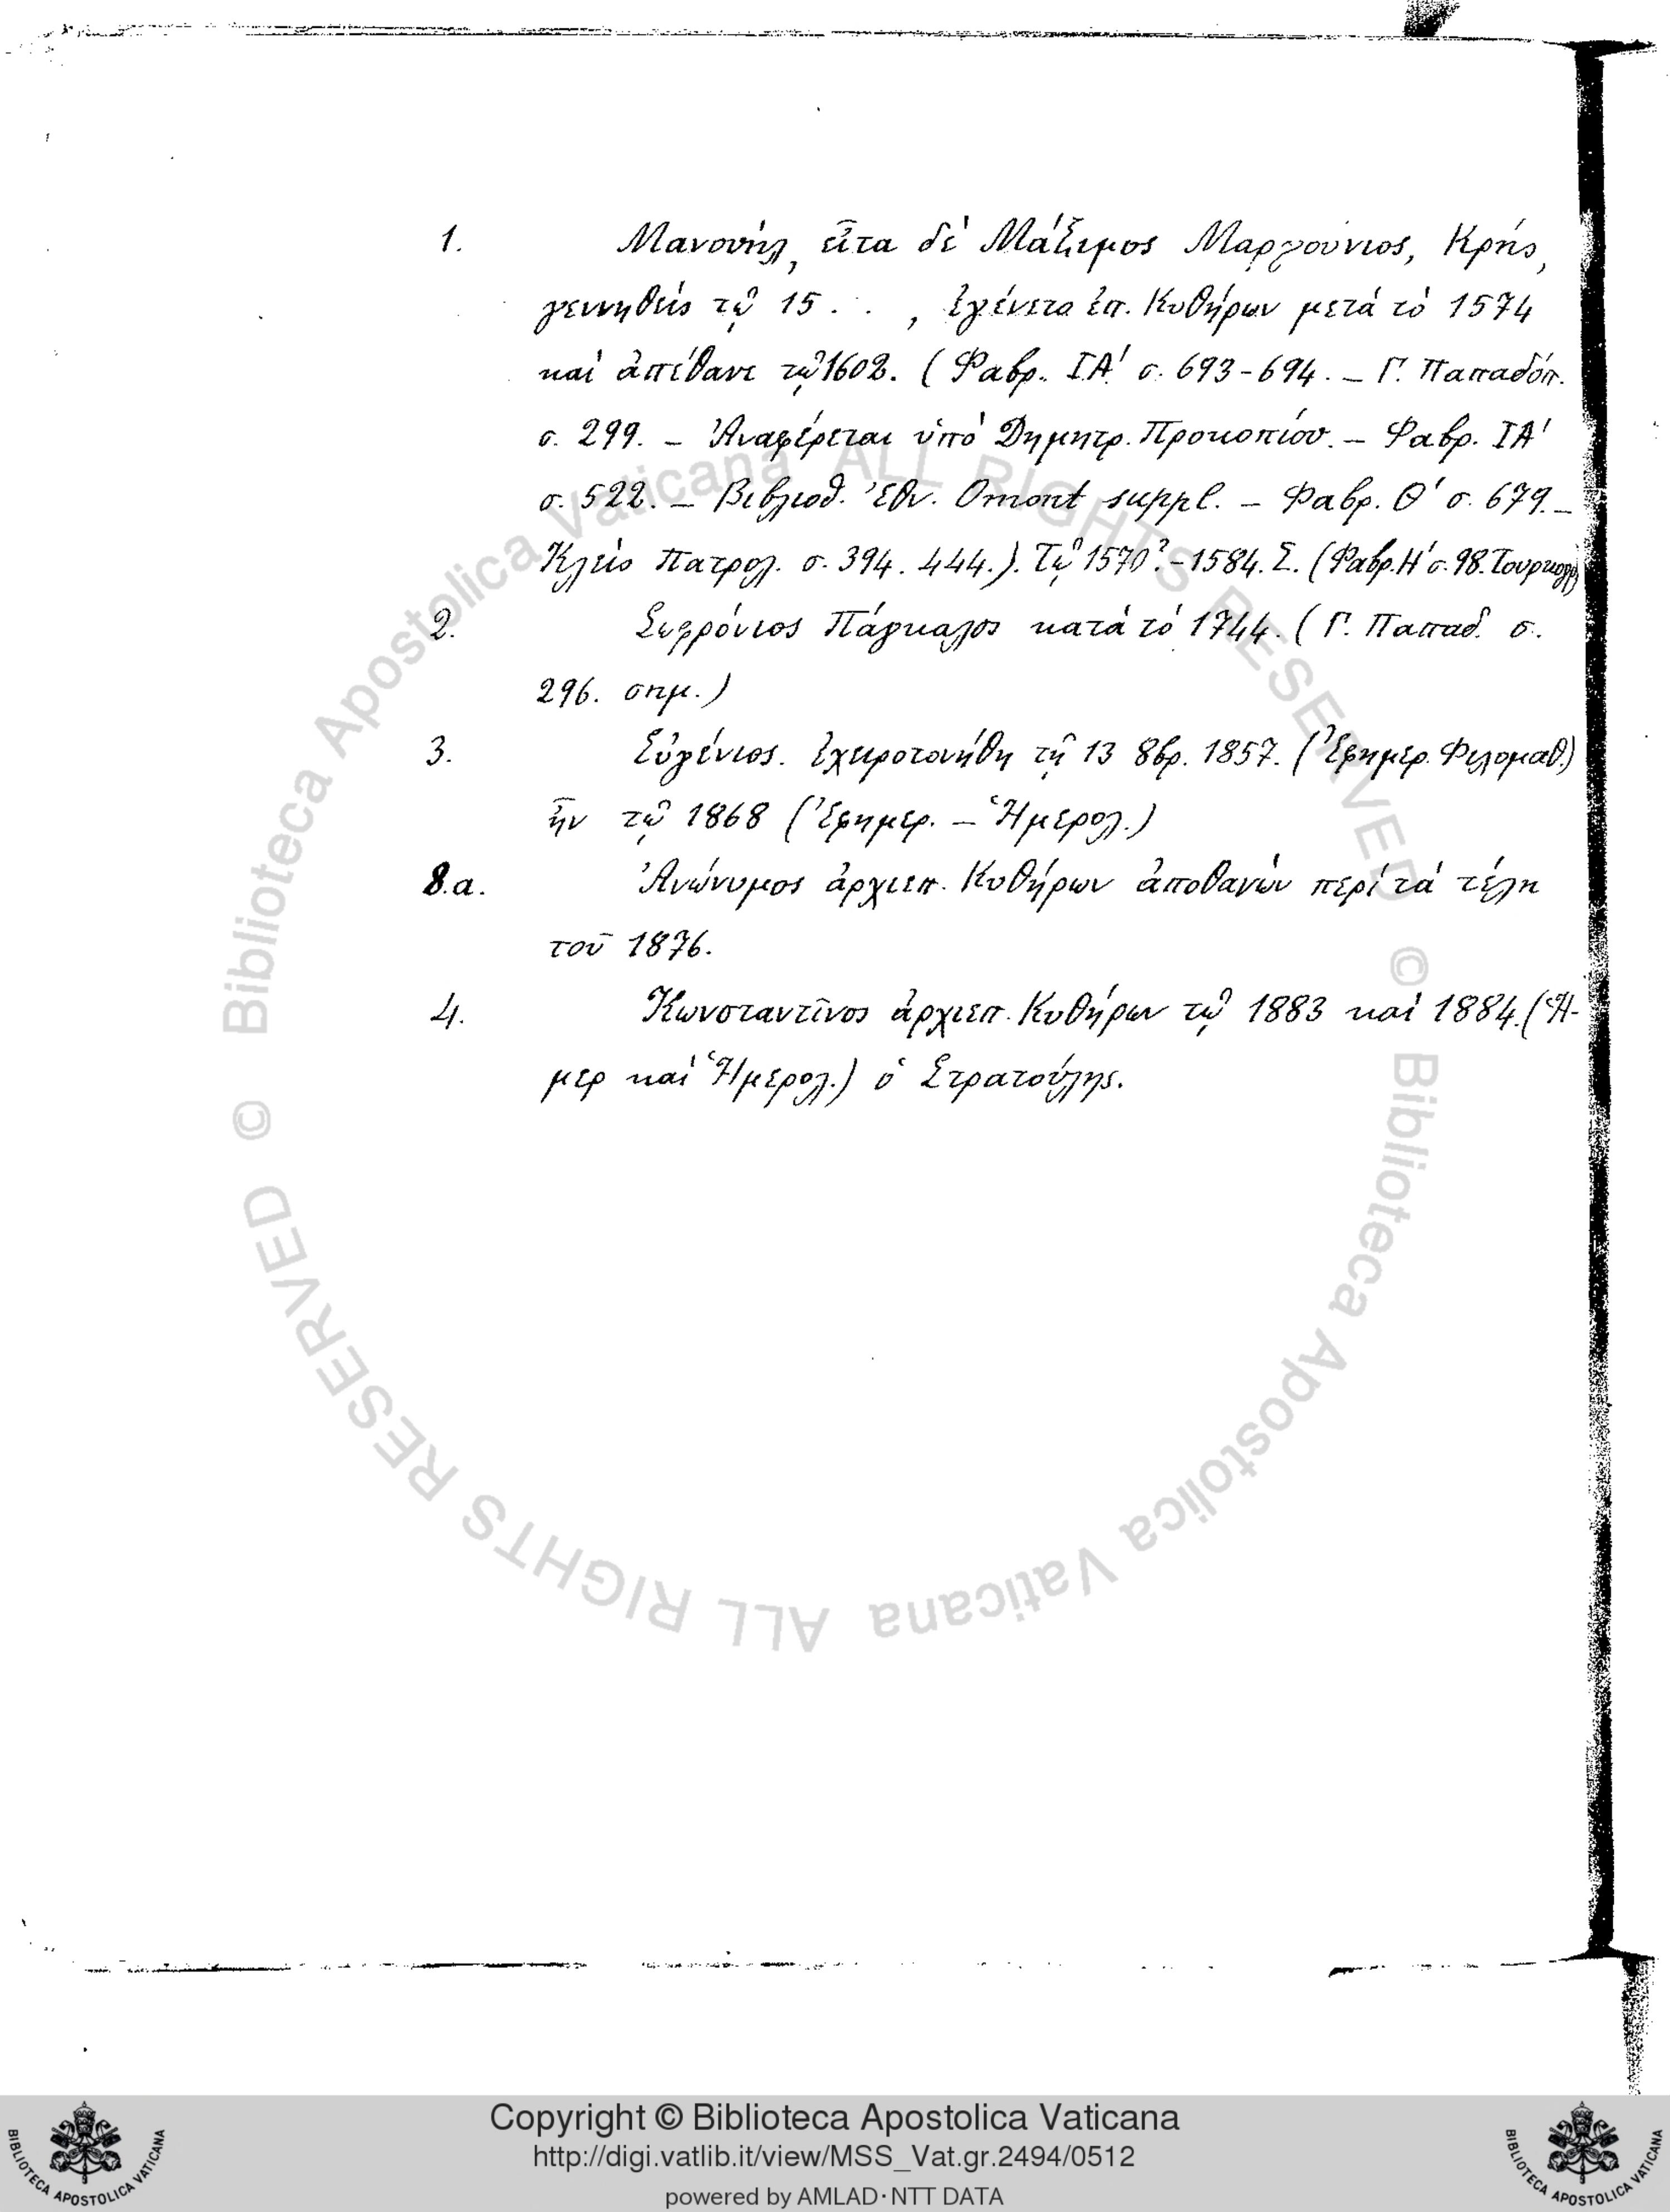 1. Μανουήλ, εἶτα δὲ Μάξιμος Μαργούνιος, Κρής,
γεννηθείς τῷ 15 . . , ἐγένετο ἐπ. Κυθήρων μετά τὸ 1574
καὶ ἀπέθανε τῷ 1602. (Φαβρ. ΙΑ' σ. 693-694. – Γ. Παπαδόπ.
σ. 299. – Ἀναφέρεται ὑπὸ Δημητρ. Προκοπίου. – Φαβρ. ΙΑ'
σ. 522. – Βιβλιοθ. Ἐθν. Omont suppl. – Φαβρ. Θ' σ. 679. –
Κλεὶς Πατρολ. σ. 394. 444.). Τῷ 1570? - 1584. Σ. (Φαβρ. Η' σ. 98. Τουρκογρ)
2. Σωφρόνιος Πάγκαλος κατὰ τὸ 1744. (Γ. Παπαδ. σ.
296. σημ.)
3. Εὐγένιος. ἐχειροτονήθη τῇ 13 8βρ. 1857. (Ἐφημερ. Φιλομαθ.)
ἦν τῷ 1868 (Ἐφημερ. – Ἡμερολ.)
8.α. Ἀνώνυμος ἀρχιεπ. Κυθήρων ἀποθανὼν περί τὰ τέλη
τοῦ 1876.
4. Κωνσταντῖνος ἀρχιεπ. Κυθήρων τῷ 1883 καὶ 1884. (Ἡ-
μερ καὶ Ἡμερολ.) ὁ Στρατούλης.
© Biblioteca Apostolica Vaticana ALL RIGHTS RESERVED
© Biblioteca Apostolica Vaticana ALL RIGHTS RESERVED
Copyright © Biblioteca Apostolica Vaticana
http://digi.vatlib.it/view/MSS_Vat.gr.2494/0512
powered by AMLAD·NTT DATA
BIBLIOTECA APOSTOLICA VATICANA
BIBLIOTECA APOSTOLICA VATICANA